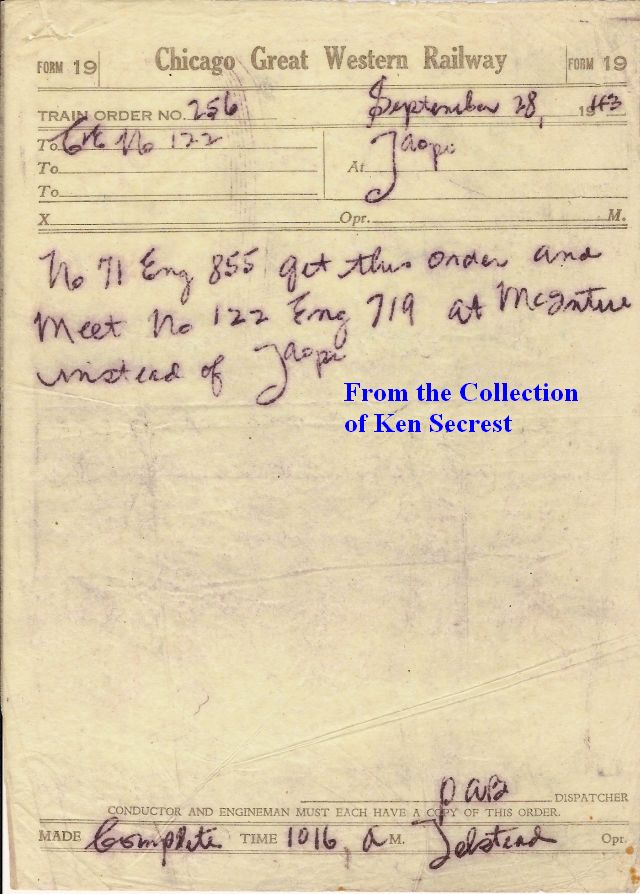 FORM 19 Chicago Great Western Railway FORM 19
TRAIN ORDER NO. 256 September 28, 1943
To C&E No 122
To At Taopi
To
X Opr. M.
No 71 Eng 855 get this order and
Meet No 122 Eng 719 at McIntire
instead of Taopi
From the Collection
of Ken Secrest
DISPATCHER
CONDUCTOR AND ENGINEMAN MUST EACH HAVE A COPY OF THIS ORDER.
MADE Complete TIME 1016 A M. Opr.